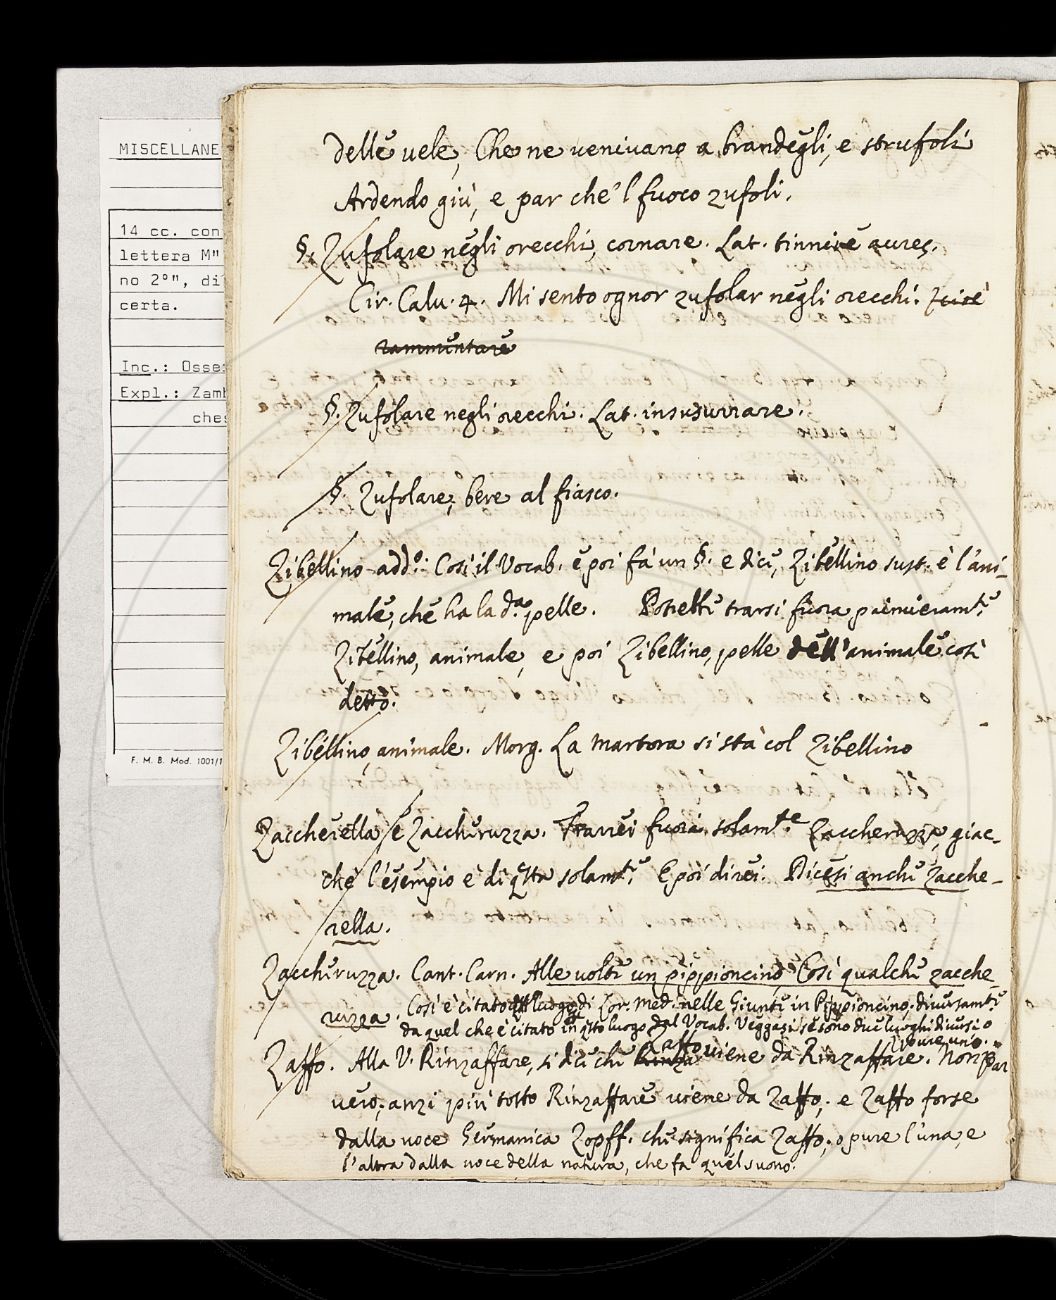 MISCELLANE
14 cc. con
lettera M"
no 2º", di
certa.
Inc.: Osse
Expl.: Zamb
che
F. M. B. Mod. 1001/1
delle vele, Che ne venivano a brandegli, e strufoli
Ardendo giù, e par che'l fuoco zufoli.
§. Zufolare negli orecchi, cornare. Lat. tinnire aures.
Cir. Calv. 4. Mi sento ognor zufolar negli orecchi.
rammentare
§. Zufolare negli orecchi. Lat. insusurrare.
§. Zufolare, bere al fiasco.
Zibellino add.º: Così il Vocab. e poi fà un §. e dice, Zibellino sust. è l'ani-
male, che ha la d.ª pelle. Potrebbe trarsi fuora primieram.te
Zibellino, animale, e poi Zibellino, pelle dell'animale così
detto.
Zibellino, animale. Morg. La martora si stà col Zibellino
Zaccherella, e Zaccheruzza. Trarrei fuora solam.te Zaccheruzza, giac-
chè l'esempio è di qsta solam.te E poi direi. Dicesi anche Zacche-
rella.
Zaccheruzza. Cant. Carn. Alle volte un pippioncino, Così qualche zacche-
ruzza. Così è citato luogo di Lor. Med. nelle Giunte in Pippioncino, diversam.te
da quel che è citato in qsto luogo dal Vocab. Veggasi se sono due luoghi diversi o
pure uno.
Zaffo. Alla V. Rinzaffare, si dice che Zaffo viene da Rinzaffare. Non par
vero, anzi più tosto Rinzaffare viene da Zaffo; e Zaffo forse
dalla voce Germanica Zopff. che significa Zaffo; o pure l'una, e
l'altra dalla voce della natura, che fa quel suono.